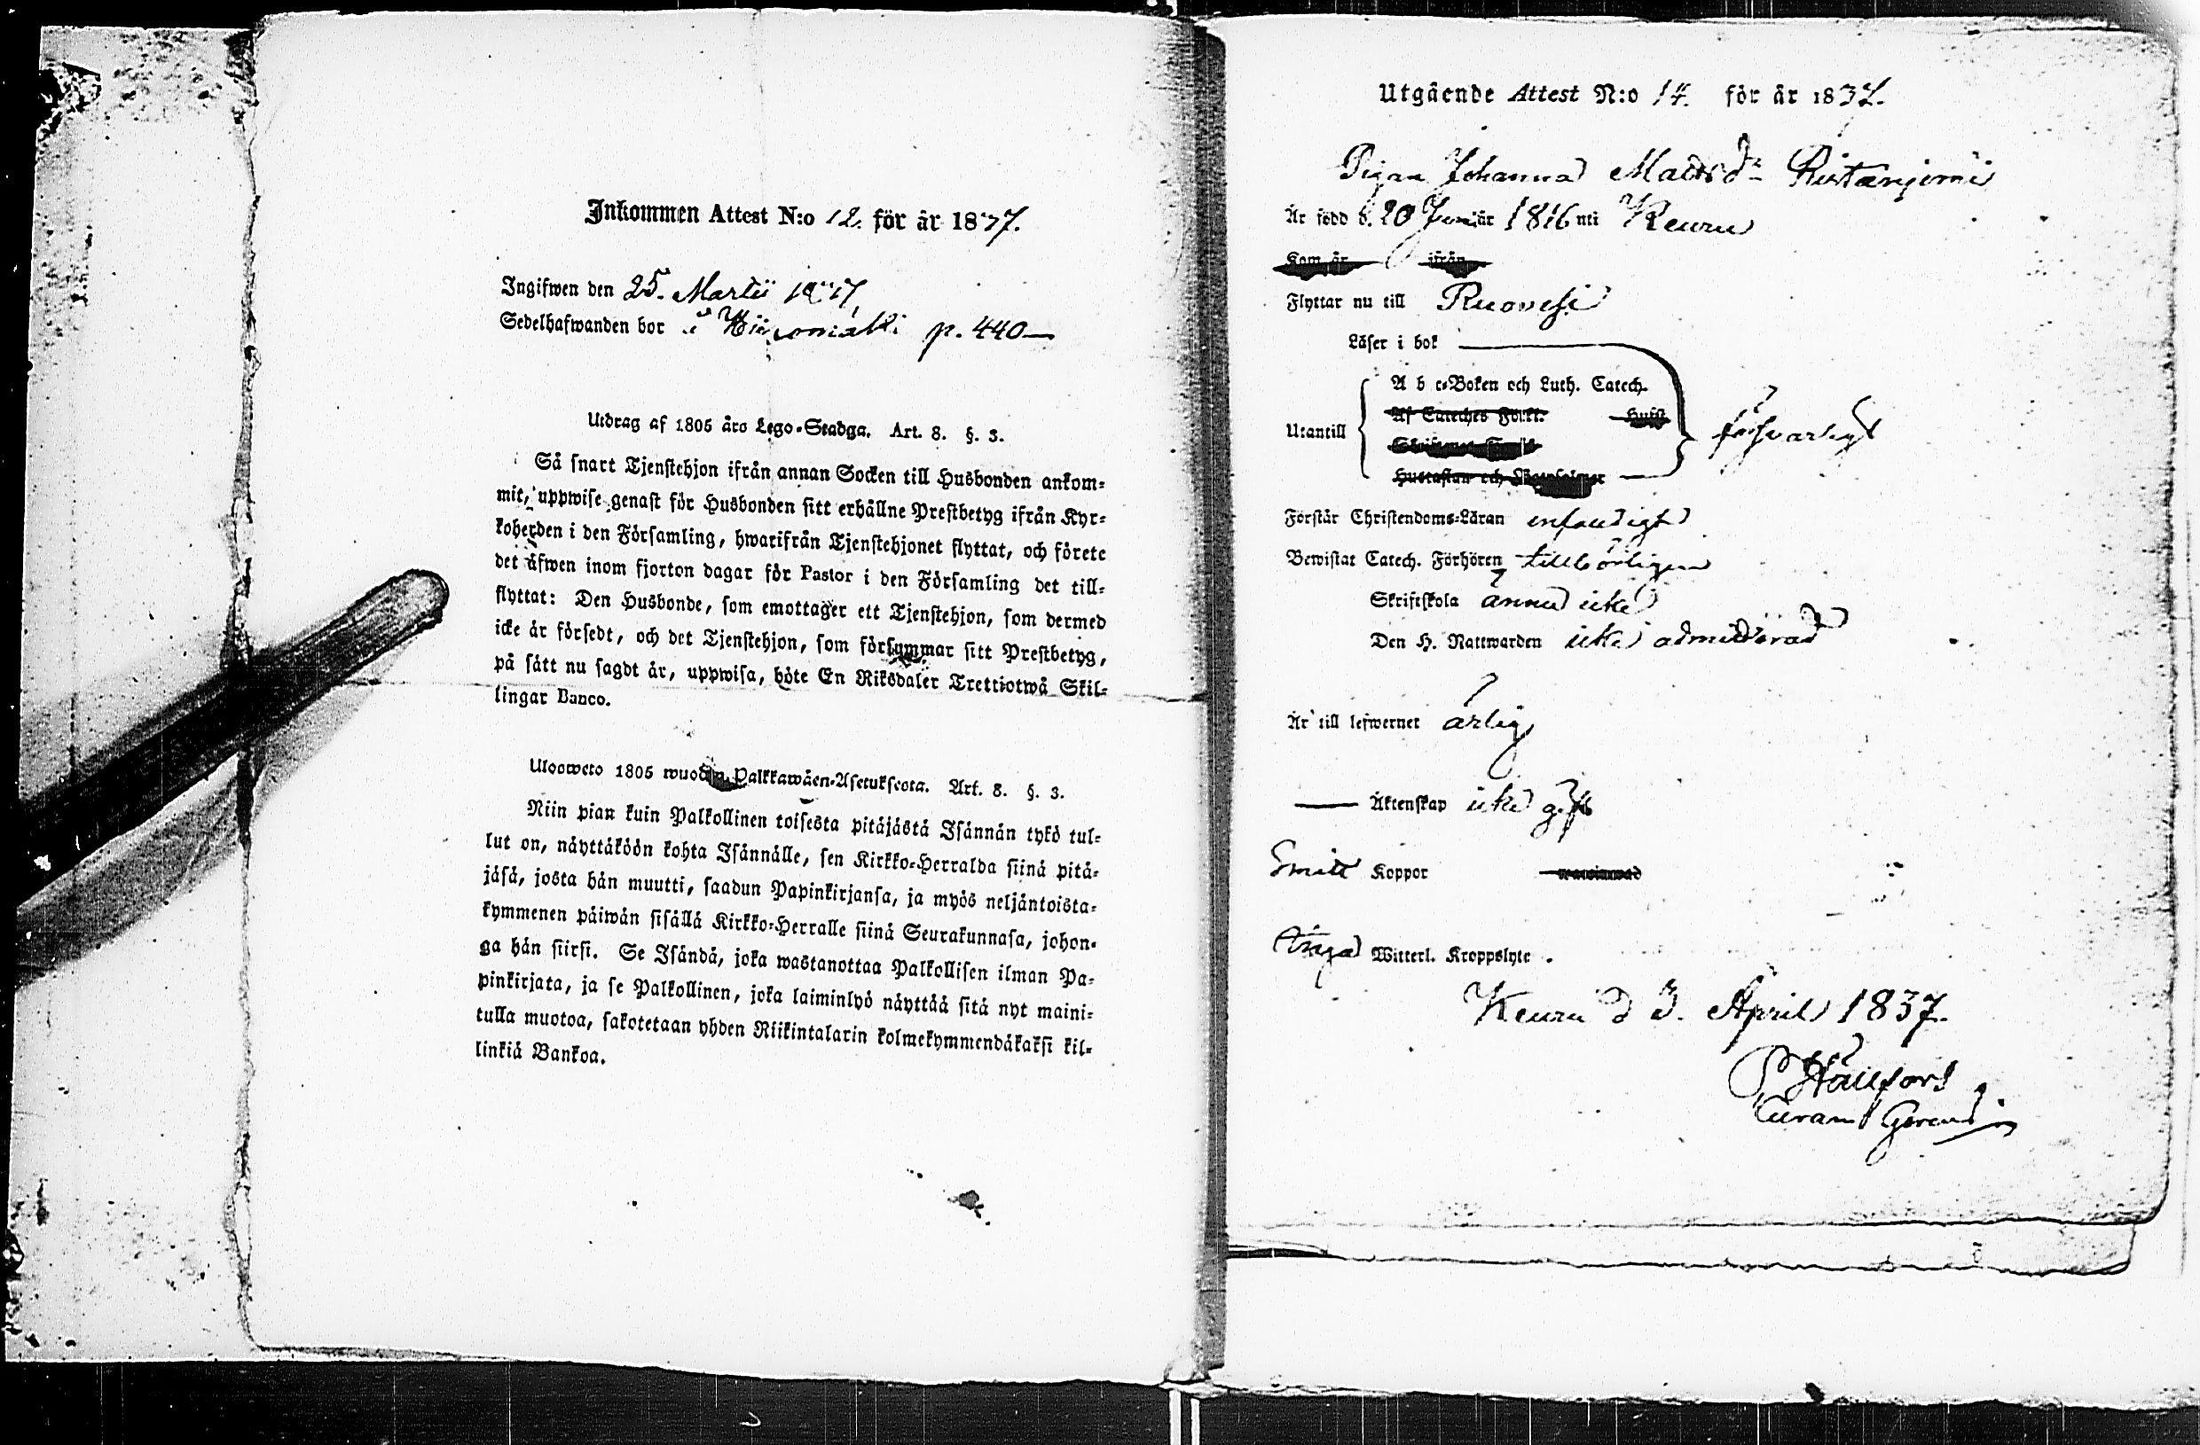 Inkommen Attest N:o 12. för år 1837.
Ingifwen den 25. Martii
Sedelhafwanden bor i p. 440
Utdrag af 1805 års Lego-Stadga. Art. 8. §. 3.
Så snart Tjenstehjon ifrån annan Socken till Husbonden ankom-
mit, uppwise genast för Husbonden sitt erhållne Prestbetyg ifrån Kyr-
koherden i den Församling, hwarifrån Tjenstehjonet flyttat, och förete
det äfwen inom fjorton dagar för Pastor i den Församling det till-
flyttat: Den Husbonde, som emottager ett Tjenstehjon, som dermed
icke är försedt, och det Tjenstehjon, som försummar sitt Prestbetyg,
på sätt nu sagdt är, uppwisa, böte En Riksdaler Trettiotwå Skil-
lingar Banco.
Ulosweto 1805 wuoden Palkkawäen-Asetuksesta. Art. 8. §. 3.
Niin pian kuin Palkollinen toisesta pitäjästä Isännän tykö tul-
lut on, näyttäköön kohta Isännälle, sen Kirkko-Herralda siinä pitä-
jäsä, josta hän muutti, saadun Papinkirjansa, ja myös neljäntoista-
kymmenen päiwän sisällä Kirkko-Herralle siinä Seurakunnasa, johon-
ga hän siirsi. Se Isändä, joka wastanottaa Palkollisen ilman Pa-
pinkirjata, ja se Palkollinen, joka laiminlyö näyttää sitä nyt maini-
tulla muotoa, sakotetaan yhden Riikintalarin kolmekymmendäkaksi kil-
linkiä Bankoa.
Utgående Attest N:o 14. för år 1837.
Pigan Johanna Matsd:r Ristanjemi
Är född d. 20 Jun: år 1816 uti Keuru
Kom år ifrån
Flyttar nu till Ruovesi
Läser i bok
A b c-Boken och Luth. Catech.
Utantill försvarligt
Förstår Christendoms-Läran enfaldigt
Bewistat Catech. Förhören tillbörligen
Skriftskola ännu icke
Den H. Nattwarden icke admitterad
Är till lefwernet ärlig
Äktenskap icke gift
Smitt Koppor
Inga Witterl. Kroppslyte.
Keuru d 3. April 1837.
P Hällfors
Curam Gerens